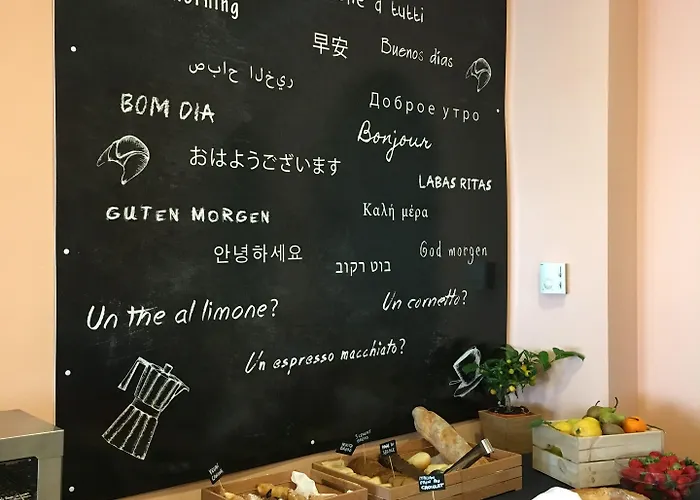 morning
a tutti
早安
Buenos días
صباح الخير
BOM DIA
Доброе утро
Bonjour
おはようございます
LABAS RITAS
GUTEN MORGEN
Καλή μέρα
안녕하세요
God morgen
בוט רקוב
Un the al limone?
Un cornetto?
Un espresso macchiato?